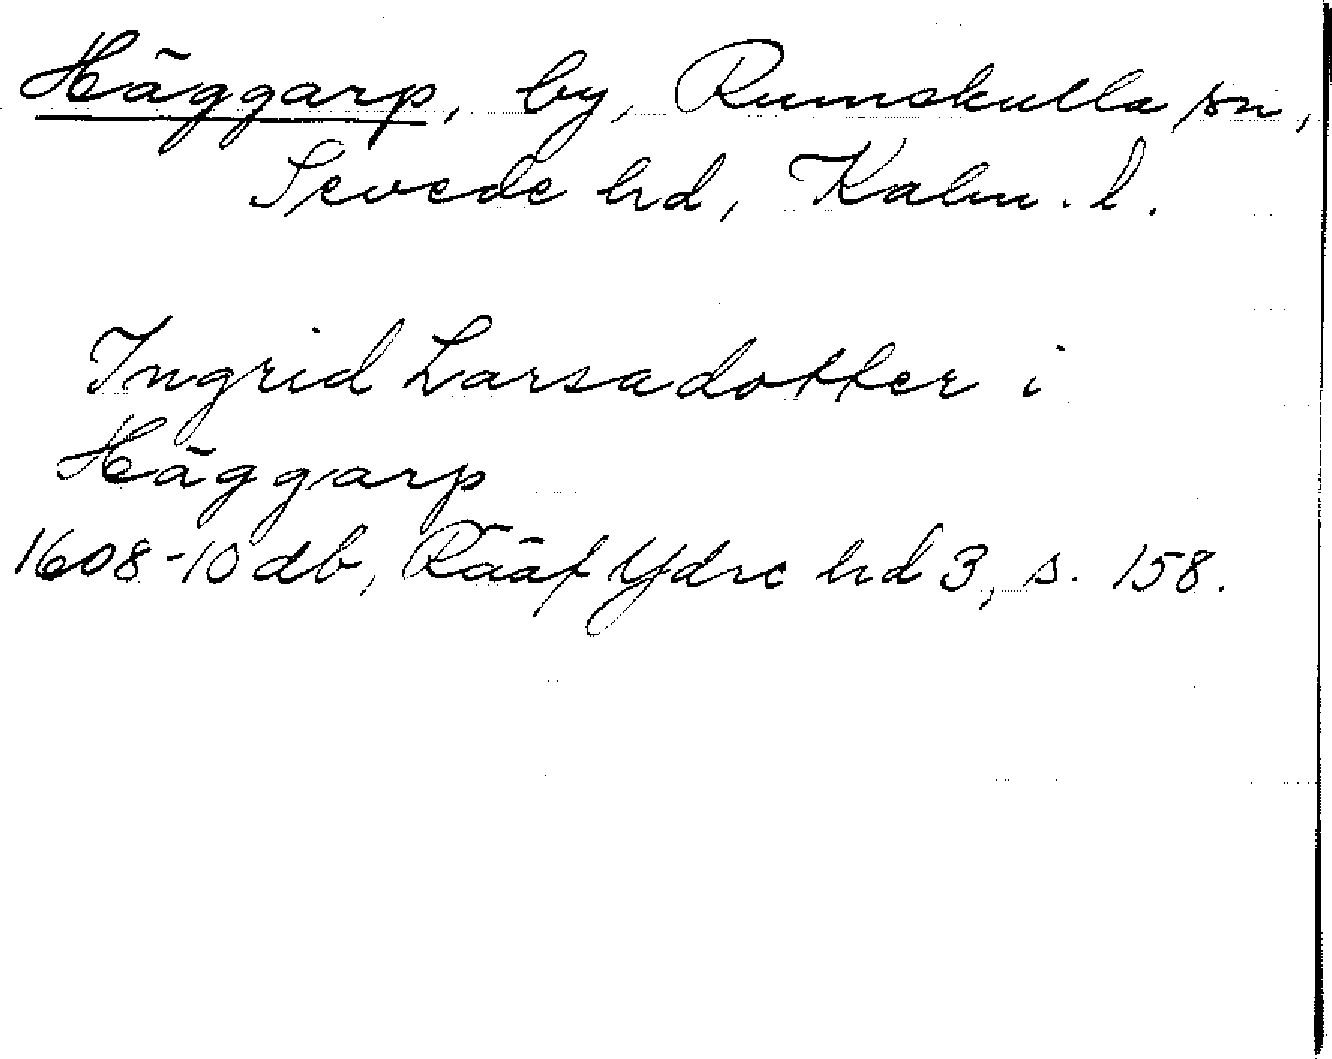 Häggarp, by, Rumskulla sn,
Sevede hd, Kalm. l.
Ingrid Larsadotter i
Häggarp
1608-10 db, Rääf Ydre hd 3, s. 158.